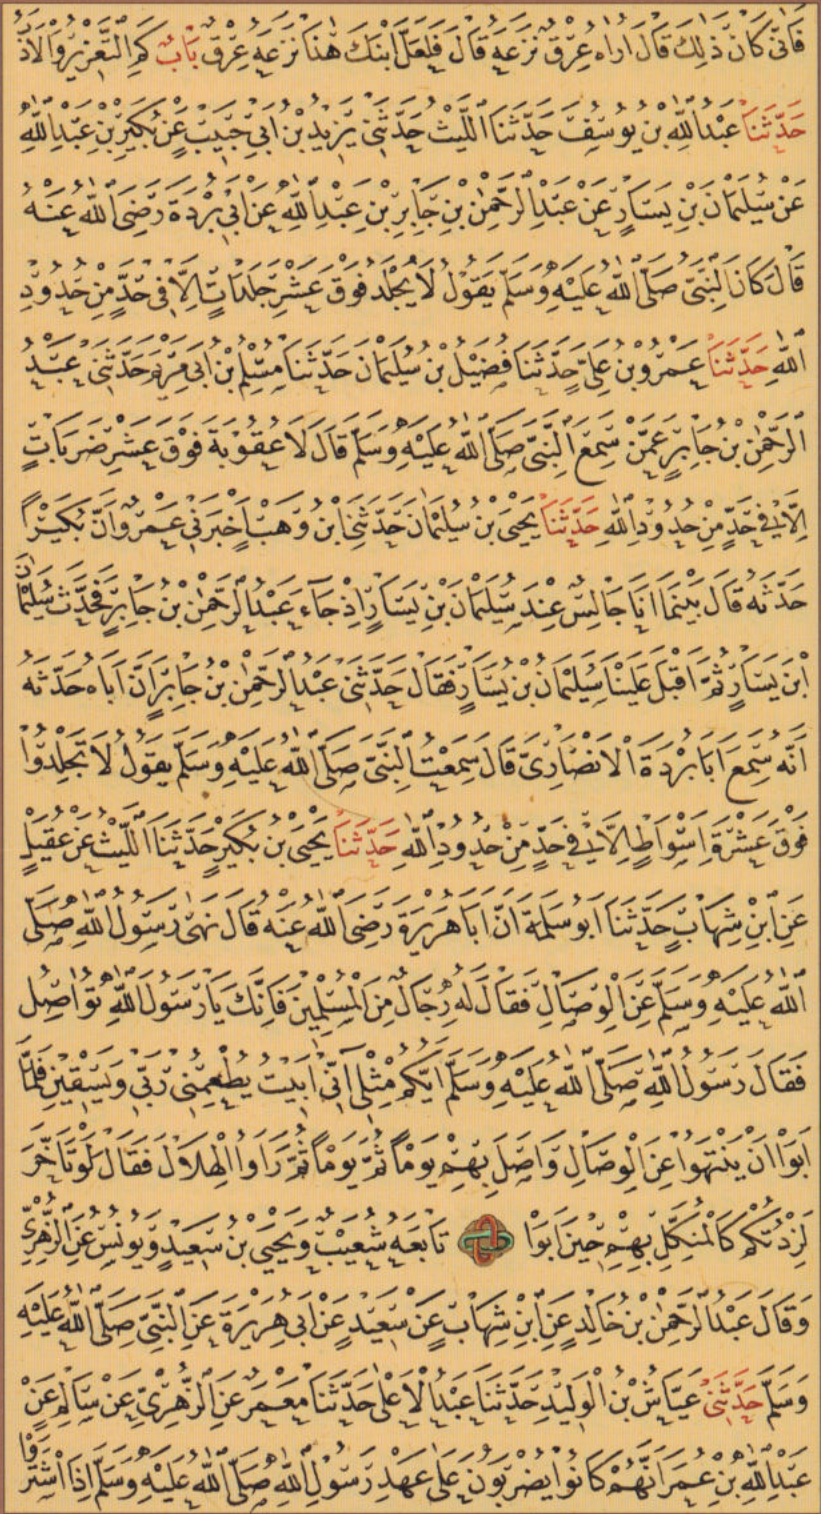 فَاَنّٰى كَانَ ذٰلِكَ قَالَ اُرَاهُ عِرْقٌ نَزَعَهُ قَالَ فَلَعَلَّ ابْنَكَ هٰذَا نَزَعَهُ عِرْقٌ بَابٌ كَمِ التَّعْزِيرُ وَالْاَدَبُ
حَدَّثَنَا عَبْدُ اللّٰهِ بْنُ يُوسُفَ حَدَّثَنَا اللَّيْثُ حَدَّثَنِى يَزِيدُ بْنُ اَبِى حَبِيبٍ عَنْ بُكَيْرِ بْنِ عَبْدِ اللّٰهِ
عَنْ سُلَيْمَانَ بْنِ يَسَارٍ عَنْ عَبْدِ الرَّحْمٰنِ بْنِ جَابِرِ بْنِ عَبْدِ اللّٰهِ عَنْ اَبِى بُرْدَةَ رَضِىَ اللّٰهُ عَنْهُ
قَالَ كَانَ النَّبِىُّ صَلَّى اللّٰهُ عَلَيْهِ وَسَلَّمَ يَقُولُ لَا يُجْلَدُ فَوْقَ عَشْرِ جَلَدَاتٍ اِلَّا فِى حَدٍّ مِنْ حُدُودِ
اللّٰهِ حَدَّثَنَا عَمْرُو بْنُ عَلِىٍّ حَدَّثَنَا فُضَيْلُ بْنُ سُلَيْمَانَ حَدَّثَنَا مُسْلِمُ بْنُ اَبِى مَرْيَمَ حَدَّثَنِى عَبْدُ
الرَّحْمٰنِ بْنُ جَابِرٍ عَمَّنْ سَمِعَ النَّبِىَّ صَلَّى اللّٰهُ عَلَيْهِ وَسَلَّمَ قَالَ لَا عُقُوبَةَ فَوْقَ عَشْرِ ضَرَبَاتٍ
اِلَّا فِى حَدٍّ مِنْ حُدُودِ اللّٰهِ حَدَّثَنَا يَحْيَى بْنُ سُلَيْمَانَ حَدَّثَنِى ابْنُ وَهْبٍ اَخْبَرَنِى عَمْرٌو اَنَّ بُكَيْرًا
حَدَّثَهُ قَالَ بَيْنَمَا اَنَا جَالِسٌ عِنْدَ سُلَيْمَانَ بْنِ يَسَارٍ اِذْ جَاءَ عَبْدُ الرَّحْمٰنِ بْنُ جَابِرٍ فَحَدَّثَ سُلَيْمَانَ
ابْنَ يَسَارٍ ثُمَّ اَقْبَلَ عَلَيْنَا سُلَيْمَانُ بْنُ يَسَارٍ فَقَالَ حَدَّثَنِى عَبْدُ الرَّحْمٰنِ بْنُ جَابِرٍ اَنَّ اَبَاهُ حَدَّثَهُ
اَنَّهُ سَمِعَ اَبَا بُرْدَةَ الْاَنْصَارِىَّ قَالَ سَمِعْتُ النَّبِىَّ صَلَّى اللّٰهُ عَلَيْهِ وَسَلَّمَ يَقُولُ لَا تَجْلِدُوا
فَوْقَ عَشْرَةِ اَسْوَاطٍ اِلَّا فِى حَدٍّ مِنْ حُدُودِ اللّٰهِ حَدَّثَنَا يَحْيَى بْنُ بُكَيْرٍ حَدَّثَنَا اللَّيْثُ عَنْ عُقَيْلٍ
عَنِ ابْنِ شِهَابٍ حَدَّثَنَا اَبُو سَلَمَةَ اَنَّ اَبَا هُرَيْرَةَ رَضِىَ اللّٰهُ عَنْهُ قَالَ نَهٰى رَسُولُ اللّٰهِ صَلَّى
اللّٰهُ عَلَيْهِ وَسَلَّمَ عَنِ الْوِصَالِ فَقَالَ لَهُ رِجَالٌ مِنَ الْمُسْلِمِينَ فَاِنَّكَ يَا رَسُولَ اللّٰهِ تُوَاصِلُ
فَقَالَ رَسُولُ اللّٰهِ صَلَّى اللّٰهُ عَلَيْهِ وَسَلَّمَ اَيُّكُمْ مِثْلِى اِنِّى اَبِيتُ يُطْعِمُنِى رَبِّى وَيَسْقِينِ فَلَمَّا
اَبَوْا اَنْ يَنْتَهُوا عَنِ الْوِصَالِ وَاصَلَ بِهِمْ يَوْمًا ثُمَّ يَوْمًا ثُمَّ رَاَوُا الْهِلَالَ فَقَالَ لَوْ تَاَخَّرَ
لَزِدْتُكُمْ كَالْمُنَكِّلِ بِهِمْ حِينَ اَبَوْا تَابَعَهُ شُعَيْبٌ وَيَحْيَى بْنُ سَعِيدٍ وَيُونُسُ عَنِ الزُّهْرِىِّ
وَقَالَ عَبْدُ الرَّحْمٰنِ بْنُ خَالِدٍ عَنِ ابْنِ شِهَابٍ عَنْ سَعِيدٍ عَنْ اَبِى هُرَيْرَةَ عَنِ النَّبِىِّ صَلَّى اللّٰهُ عَلَيْهِ
وَسَلَّمَ حَدَّثَنِى عَيَّاشُ بْنُ الْوَلِيدِ حَدَّثَنَا عَبْدُ الْاَعْلٰى حَدَّثَنَا مَعْمَرٌ عَنِ الزُّهْرِىِّ عَنْ سَالِمٍ عَنْ
عَبْدِ اللّٰهِ بْنِ عُمَرَ اَنَّهُمْ كَانُوا يُضْرَبُونَ عَلٰى عَهْدِ رَسُولِ اللّٰهِ صَلَّى اللّٰهُ عَلَيْهِ وَسَلَّمَ اِذَا اشْتَرَوْا